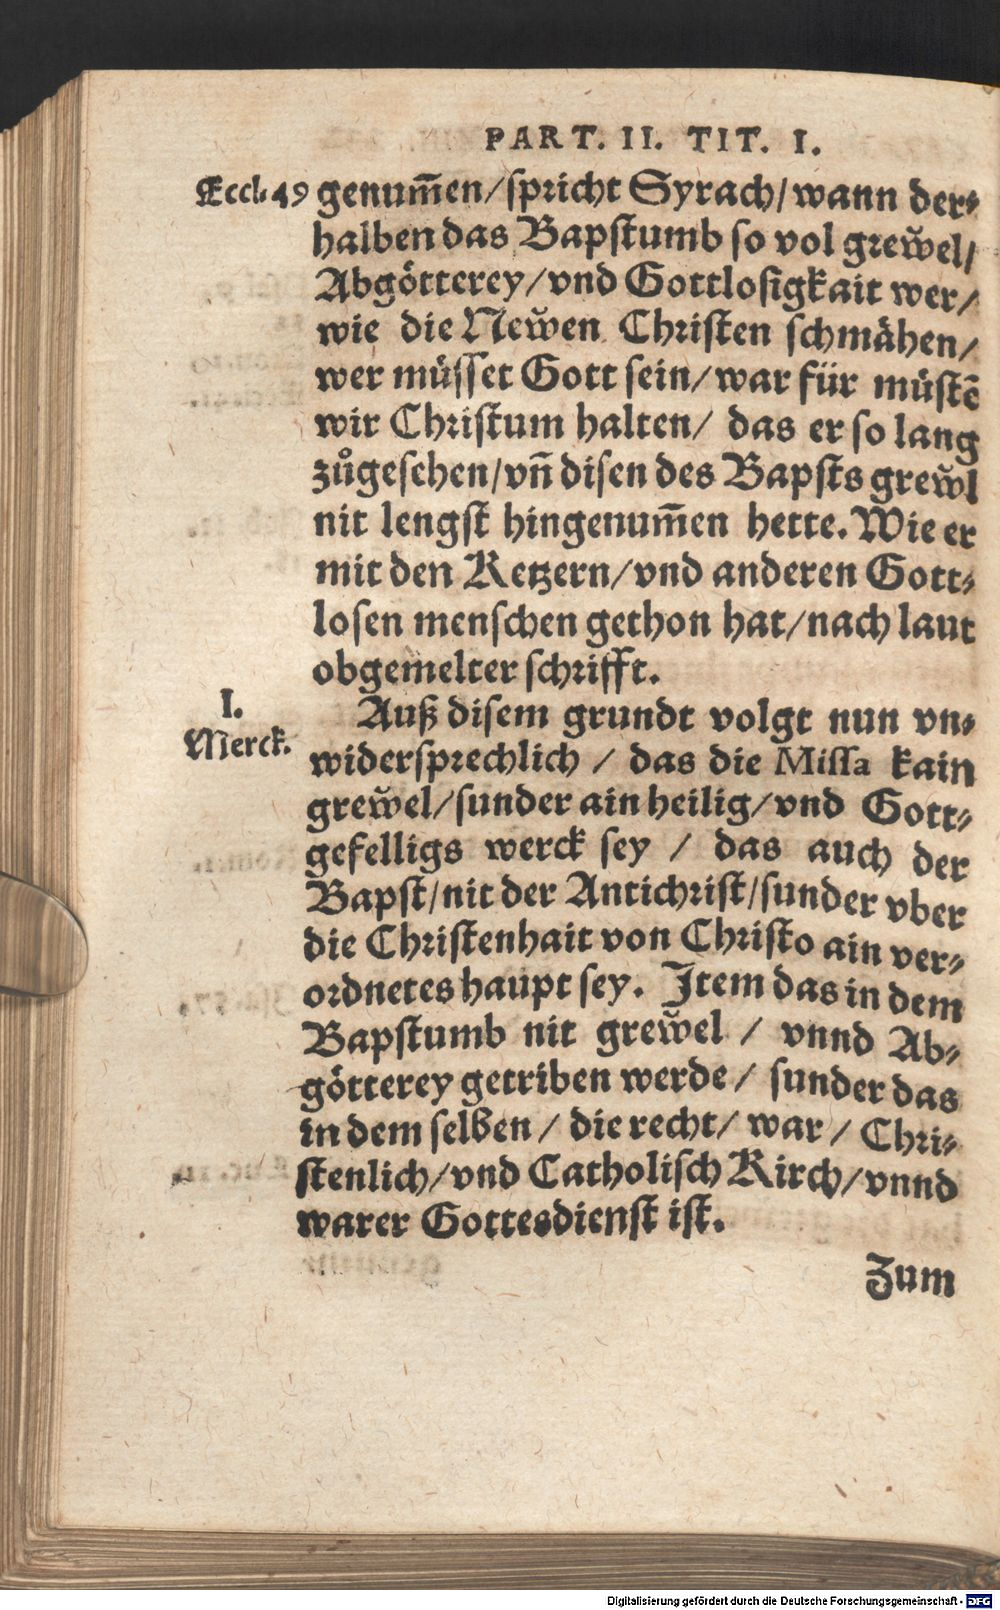 PART. II. TIT. I.
Eccl. 49 genum̃en/spricht Syrach/wann der⸗
halben das Bapstumb so vol grew̌el/
Abgötterey/vnd Gottlosigkait wer/
wie die New̌en Christen schmåhen/
wer müsset Gott sein/war für müstẽ
wir Christum halten/ das er so lang
zůgesehen/vñ disen des Bapsts grew̌l
nit lengst hingenum̃en hette. Wie er
mit den Ketzern/vnd anderen Gott⸗
losen menschen gethon hat/nach laut
obgemelter schrifft.
I.
Merck.
Auß disem grundt volgt nun vn⸗
widersprechlich / das die Missa kain
grew̌el/sunder ain heilig/vnd Gott⸗
gefelligs werck sey / das auch der
Bapst/nit der Antichrist/sunder vber
die Christenhait von Christo ain ver⸗
ordnetes haupt sey. Item das in dem
Bapstumb nit grew̌el / vnnd Ab⸗
götterey getriben werde / sunder das
in dem selben / die recht/ war / Chri⸗
stenlich/vnd Catholisch Kirch/vnnd
warer Gottesdienst ist.
Zum
Digitalisierung gefördert durch die Deutsche Forschungsgemeinschaft - DFG